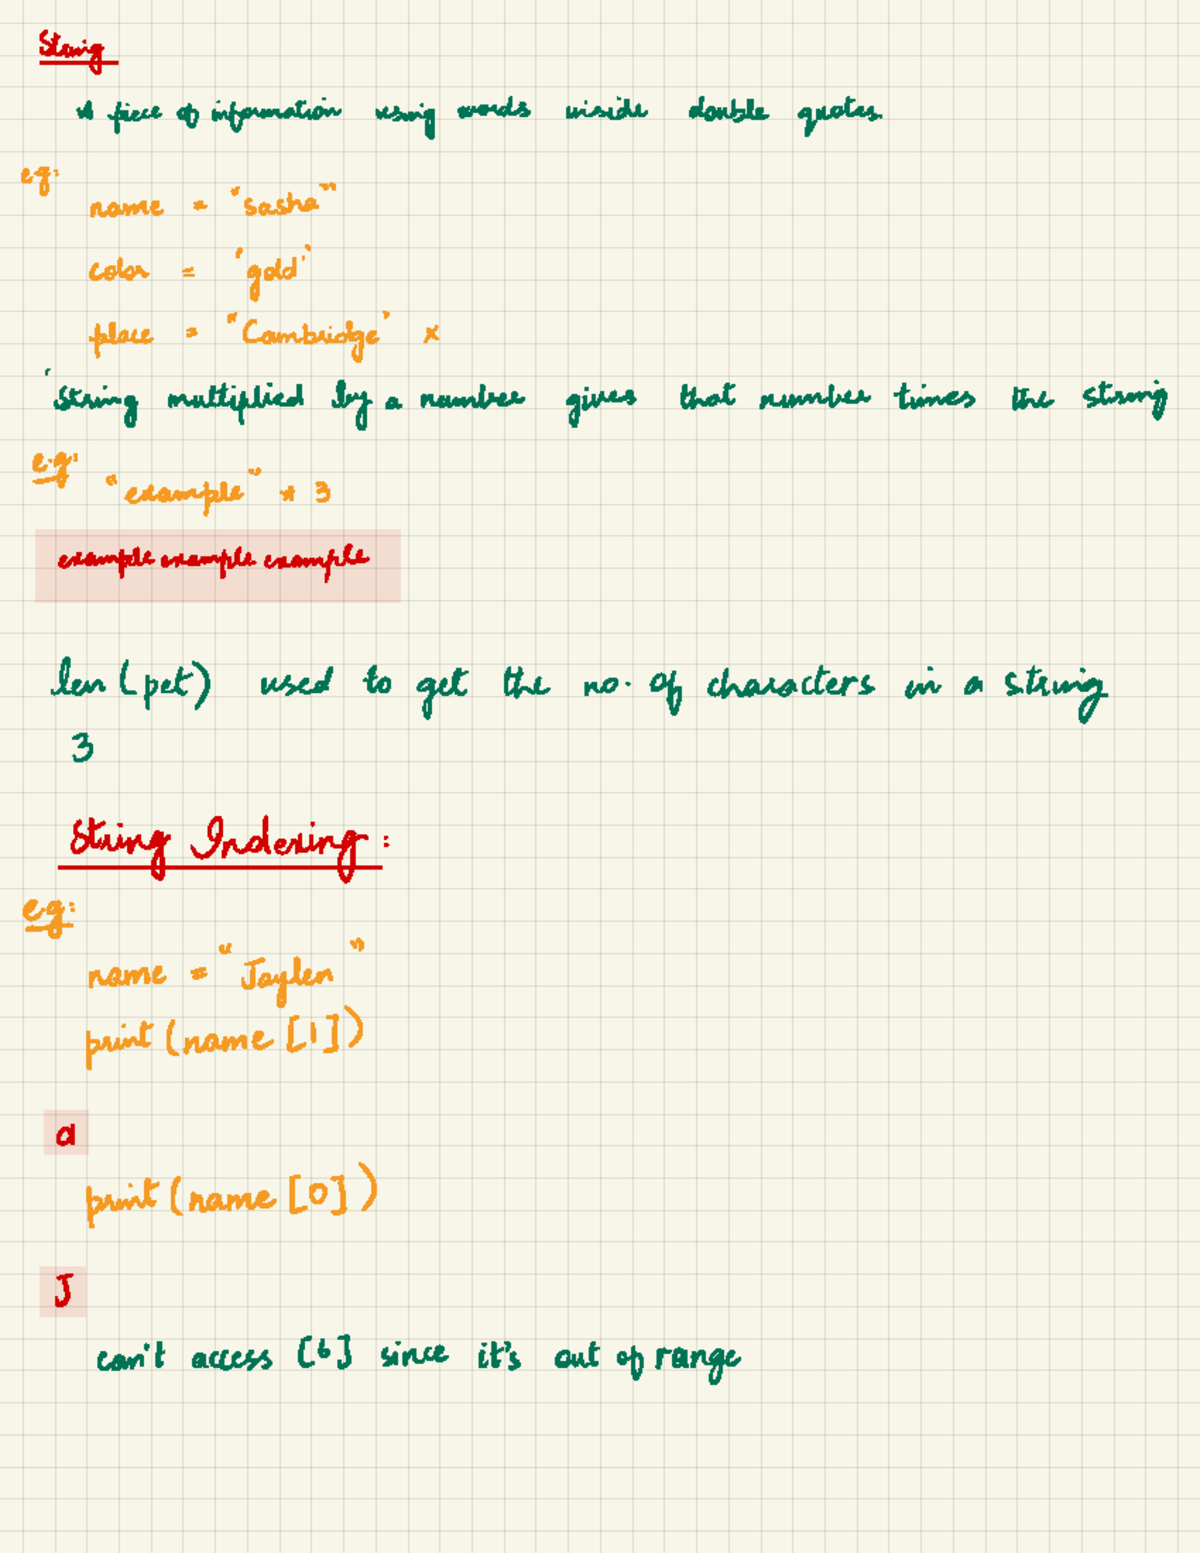 String
A piece of information using words inside double quotes.
eg:
name = "sasha"
color = 'gold'
place = "Cambridge' x
'String multiplied by a number gives that number times the string
e.g:
"example" * 3
example example example
len (pet) used to get the no. of characters in a string
3
String Indexing:
e.g:
name = "Jaylen"
print (name [1])
a
print (name [0])
J
can't access [6] since it's out of range